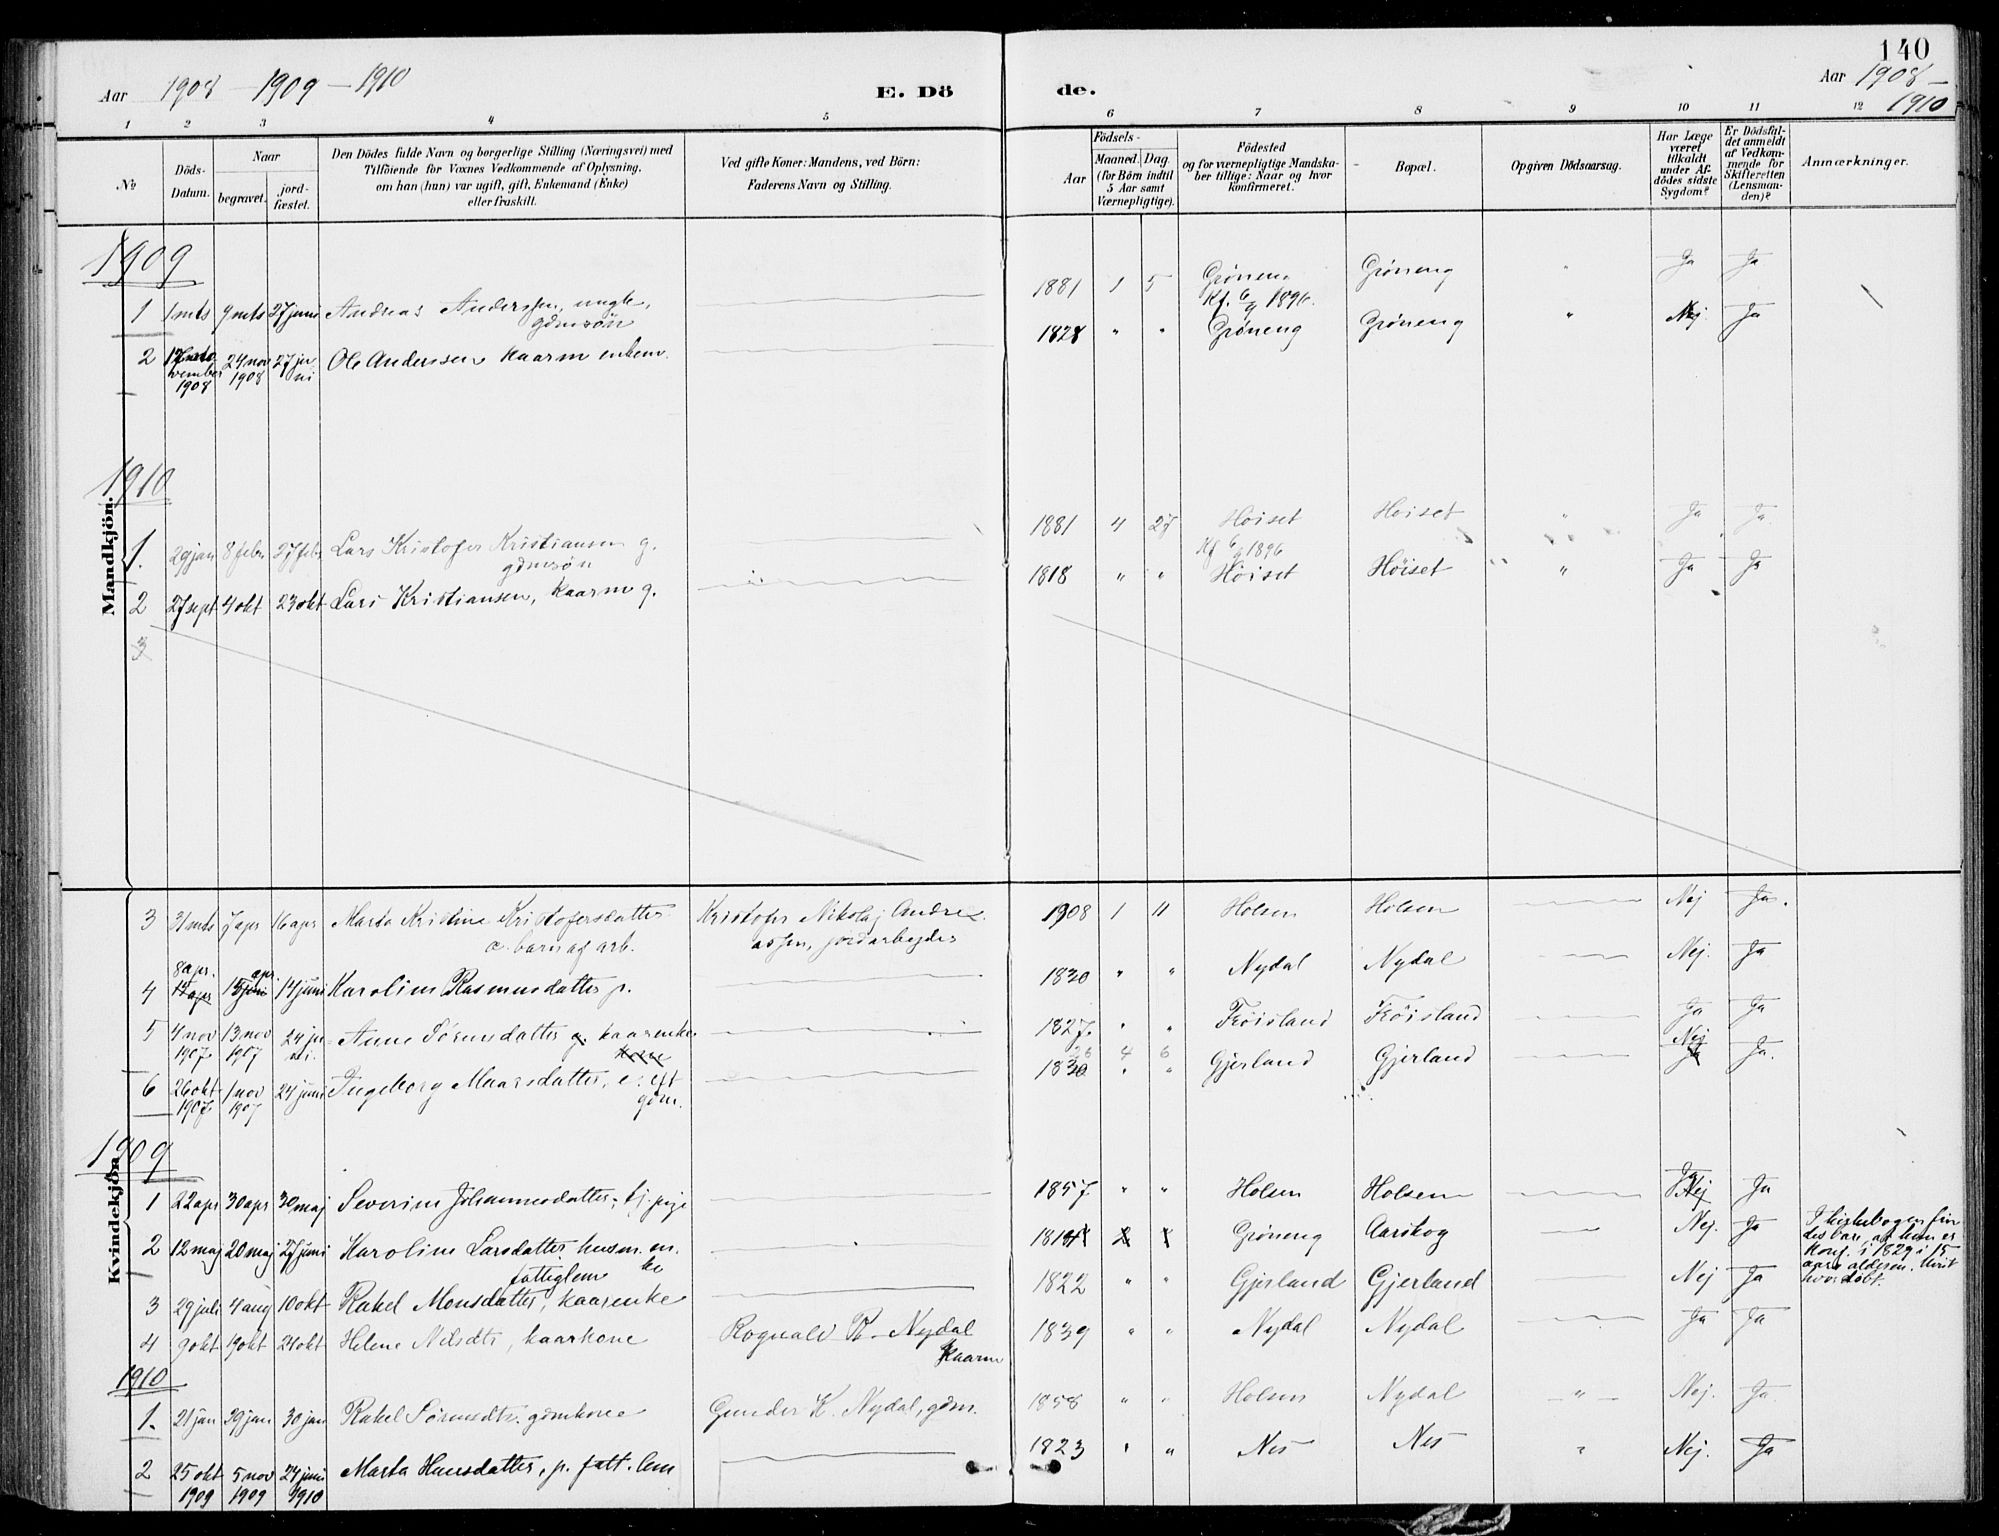 140
Aar 1908 - 1909 - 1910 E. Dö de. Aar 1908 - 1910
1 2 3 4 5 6 7 8 9 10 11 12
No
Döds-Datum.
Naar
begravet.
jord-fæstet.
Den Dödes fulde Navn og borgerlige Stilling (Næringsvei) med
Tilföiende for Voxnes Vedkommende af Oplysning,
om han (hun) var ugift, gift, Enkemand (Enke)
eller fraskilt.
Ved gifte Koner: Mandens, ved Börn:
Faderens Navn og Stilling.
Födsels-
Aar
Maaned. Dag.
(for Börn indtil
5 Aar samt
Værnepligtige).
Födested
og for værnepligtige Mandska-
ber tillige: Naar og hvor
konfirmeret.
Bopæl.
Opgiven Dödsaarsag.
Har Læge
været
tilkaldt
under Af-
dödes sidste
Sygdom?
Er Dödsfal-
det anmeldt
af Vedkom-
mende for
Skifteretten
(Lensman-
den)?
Anmærkninger.
Mandkjön.
1909
1 1 mts 9 mts 27 juni Andreas Anderssen, ungk., gdmsøn 1881 1 5 Grøneng Kf. 6/9 1896. Grøneng " Ja Ja
2 vember 1908 24 nov 1908 27 juni Ole Anderssen kaarm enkem. 1828 " " Grøneng Grøneng " Nej Ja
1910
1. 29 jan 8 febr 27 feb Lars Kristofer Kristiansen g. gdmsøn 1881 4 27 Høiset Kf 6/9 1896 Høiset " Ja Ja
2 27 sept 4 okt 23 okt Lars Kristiansen, kaarm g. 1818 " " Høiset Høiset " Ja Ja
3
Kvindekjön
3 31 mts 7 apr 16 apr Marta Kristine Kristofersdatter æ. barn af arb. Kristofer Nikolaj Andreassen, jordarbejder 1908 1 11 Holsen Holsen Nej Ja.
4 8 apr. 15 apr 14 juni Karoline Rasmusdatter p. 1830 " " Nydal Nydal Nej. Ja
5 4 nov 1907 13 nov 1907 24 juni. Anne Sørensdatter g. kaarenke 1827. " " Frøisland Frøisland Ja Ja
6 26 okt 1907. 1 nov 1907 24 juni Ingeborg Maarsdatter, e. eft gdm. 1830 26 4 6 Gjerland Gjerland Nej Ja.
1909
1 22 apr 30 apr 30 maj Severine Johannesdatter, tj. pige 1857. " " Holsen Holsen Nej Ja
2 12 maj 20 maj 27 juni Karoline Larsdatter husm. enke fattiglem 1814 Grøneng Aarskog Nej. Ja I kirkebogen fin
des bare, at hun er
konf. i 1829 i 15
aars alderen. Uvist
hvor døbt.
3 29 juli 4 aug 10 okt Rakel Monsdatter, kaarenke 1822 " " Gjerland Gjerland Nej Ja
4 9 okt 19 okt 24 okt Helene Nilsdtr, kaarkone Rognald R. Nydal kaarm 1839 " " Nydal Nydal Ja Ja
1910
1. 21 jan 29 jan 30 jan Rakel Sørensdtr. gdmkone Gunder K. Nydal, gdm. 1858 " " Holsen Nydal " Nej. Ja
2 25 okt 1909 5 nov 1909 24 juni 1910 Marta Hansdatter, p. fatt. lem 1823 " " Nes Nes " Nej. Ja